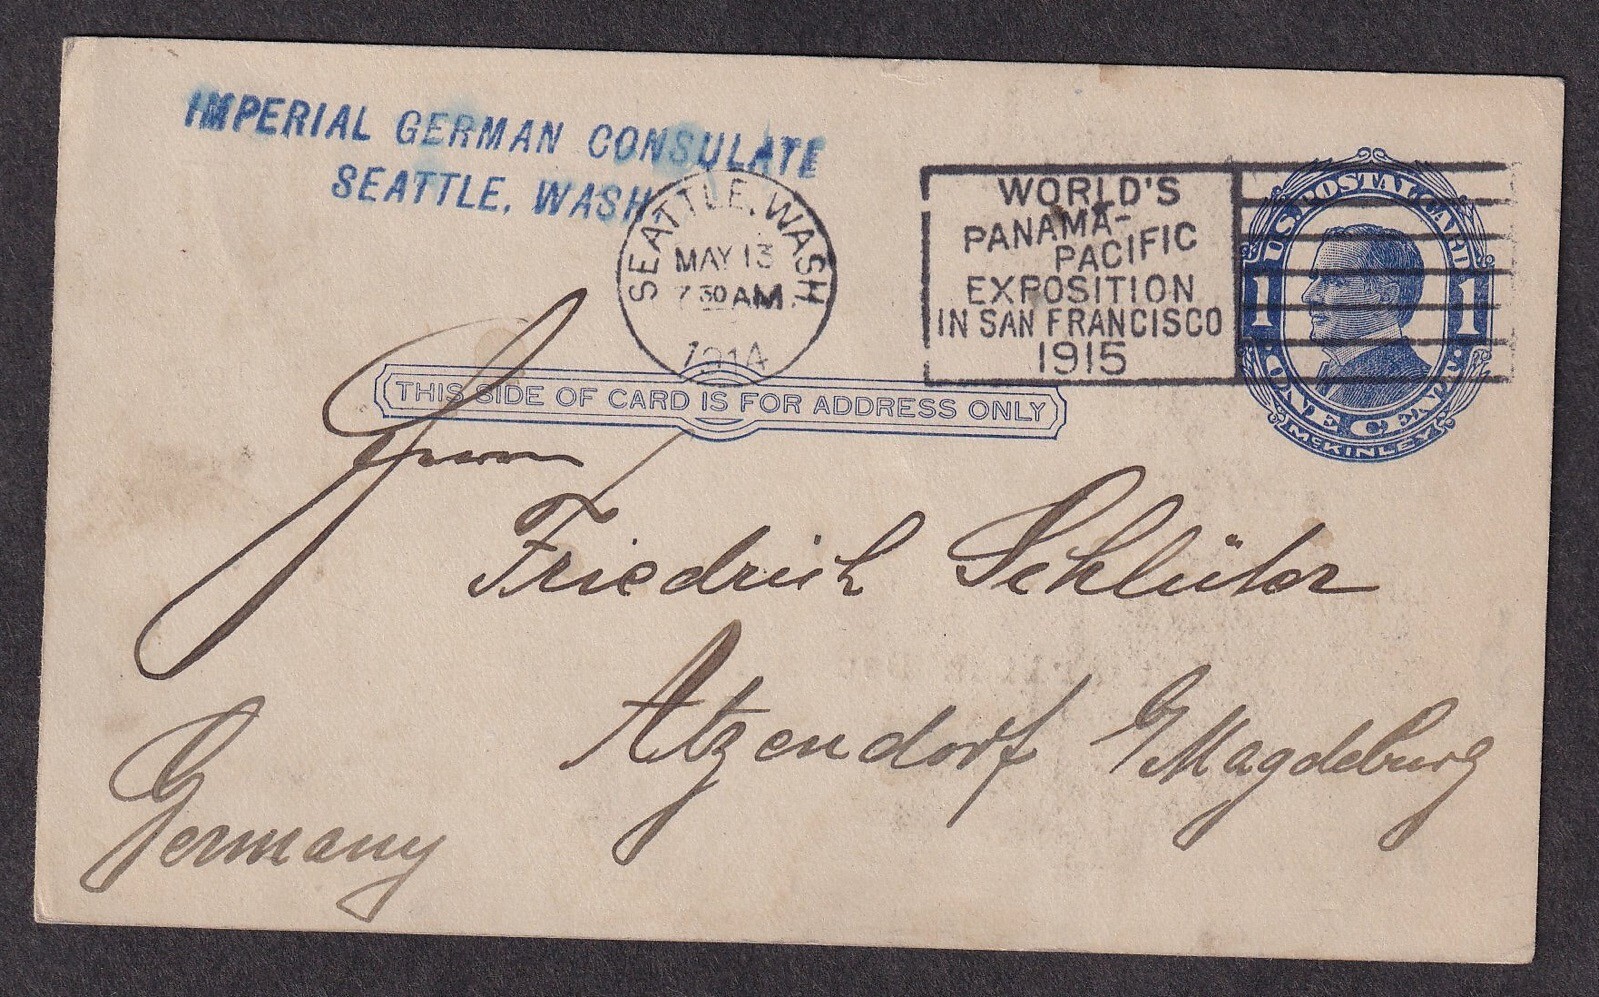 IMPERIAL GERMAN CONSULATE
SEATTLE, WASH
SEATTLE, WASH.
MAY 13
7 30 AM
1914
WORLD'S
PANAMA-
PACIFIC
EXPOSITION
IN SAN FRANCISCO
1915
U.S. POSTAL CARD
1 1
·ONE CENT·
McKINLEY
THIS SIDE OF CARD IS FOR ADDRESS ONLY
Herrn
Friedrich Schlüter
Atzendorf b/Magdeburg
Germany